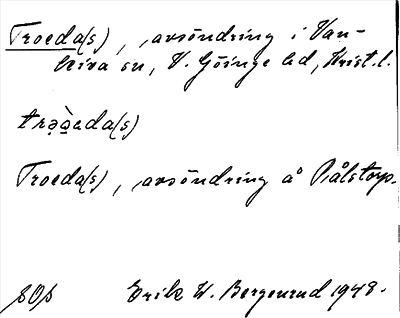 Troeda(s), avsöndring i Van-
keiva sn, V. Göinge hd, Krist. l.
trə̀ạeda(s)
Troeda(s), avsöndring å Pålstorp.
SOp Erik W. Bergenrud 1948.